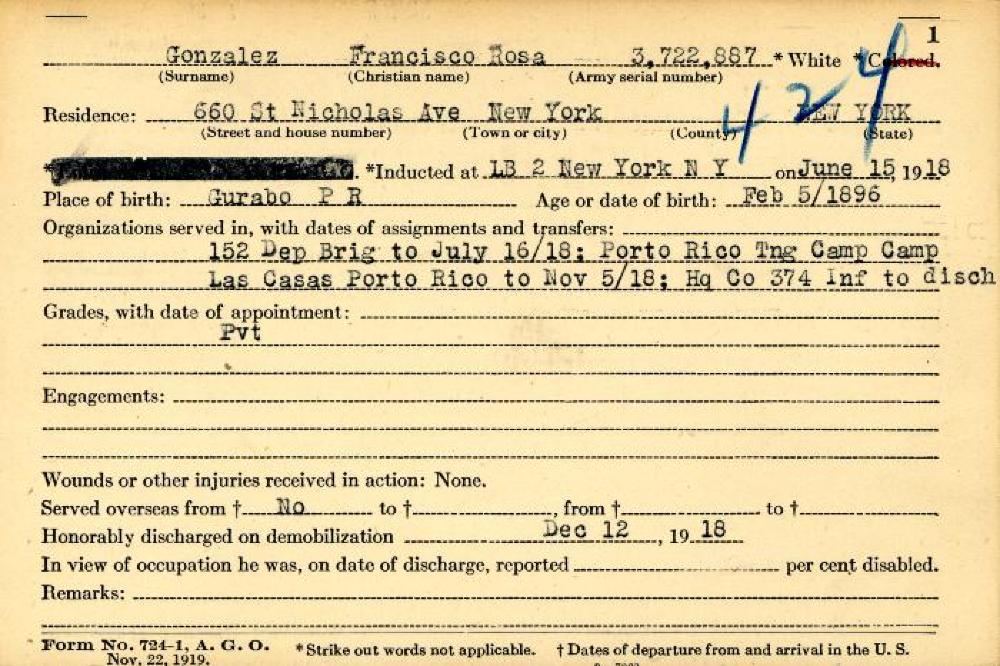 1
Gonzalez Francisco Rosa 3,722,887 * White * Colored.
(Surname) (Christian name) (Army serial number)
424
Residence: 660 St Nicholas Ave New York NEW YORK
(Street and house number) (Town or city) (County) (State)
*Inducted at LB 2 New York N Y on June 15, 1918
Place of birth: Gurabo P R Age or date of birth: Feb 5/1896
Organizations served in, with dates of assignments and transfers:
152 Dep Brig to July 16/18; Porto Rico Tng Camp Camp
Las Casas Porto Rico to Nov 5/18; Hq Co 374 Inf to disch
Grades, with date of appointment:
Pvt
Engagements:
Wounds or other injuries received in action: None.
Served overseas from † No to †, from † to †
Honorably discharged on demobilization Dec 12, 19 18
In view of occupation he was, on date of discharge, reported per cent disabled.
Remarks:
Form No. 724-1, A. G. O. *Strike out words not applicable. † Dates of departure from and arrival in the U. S.
Nov. 22, 1919.